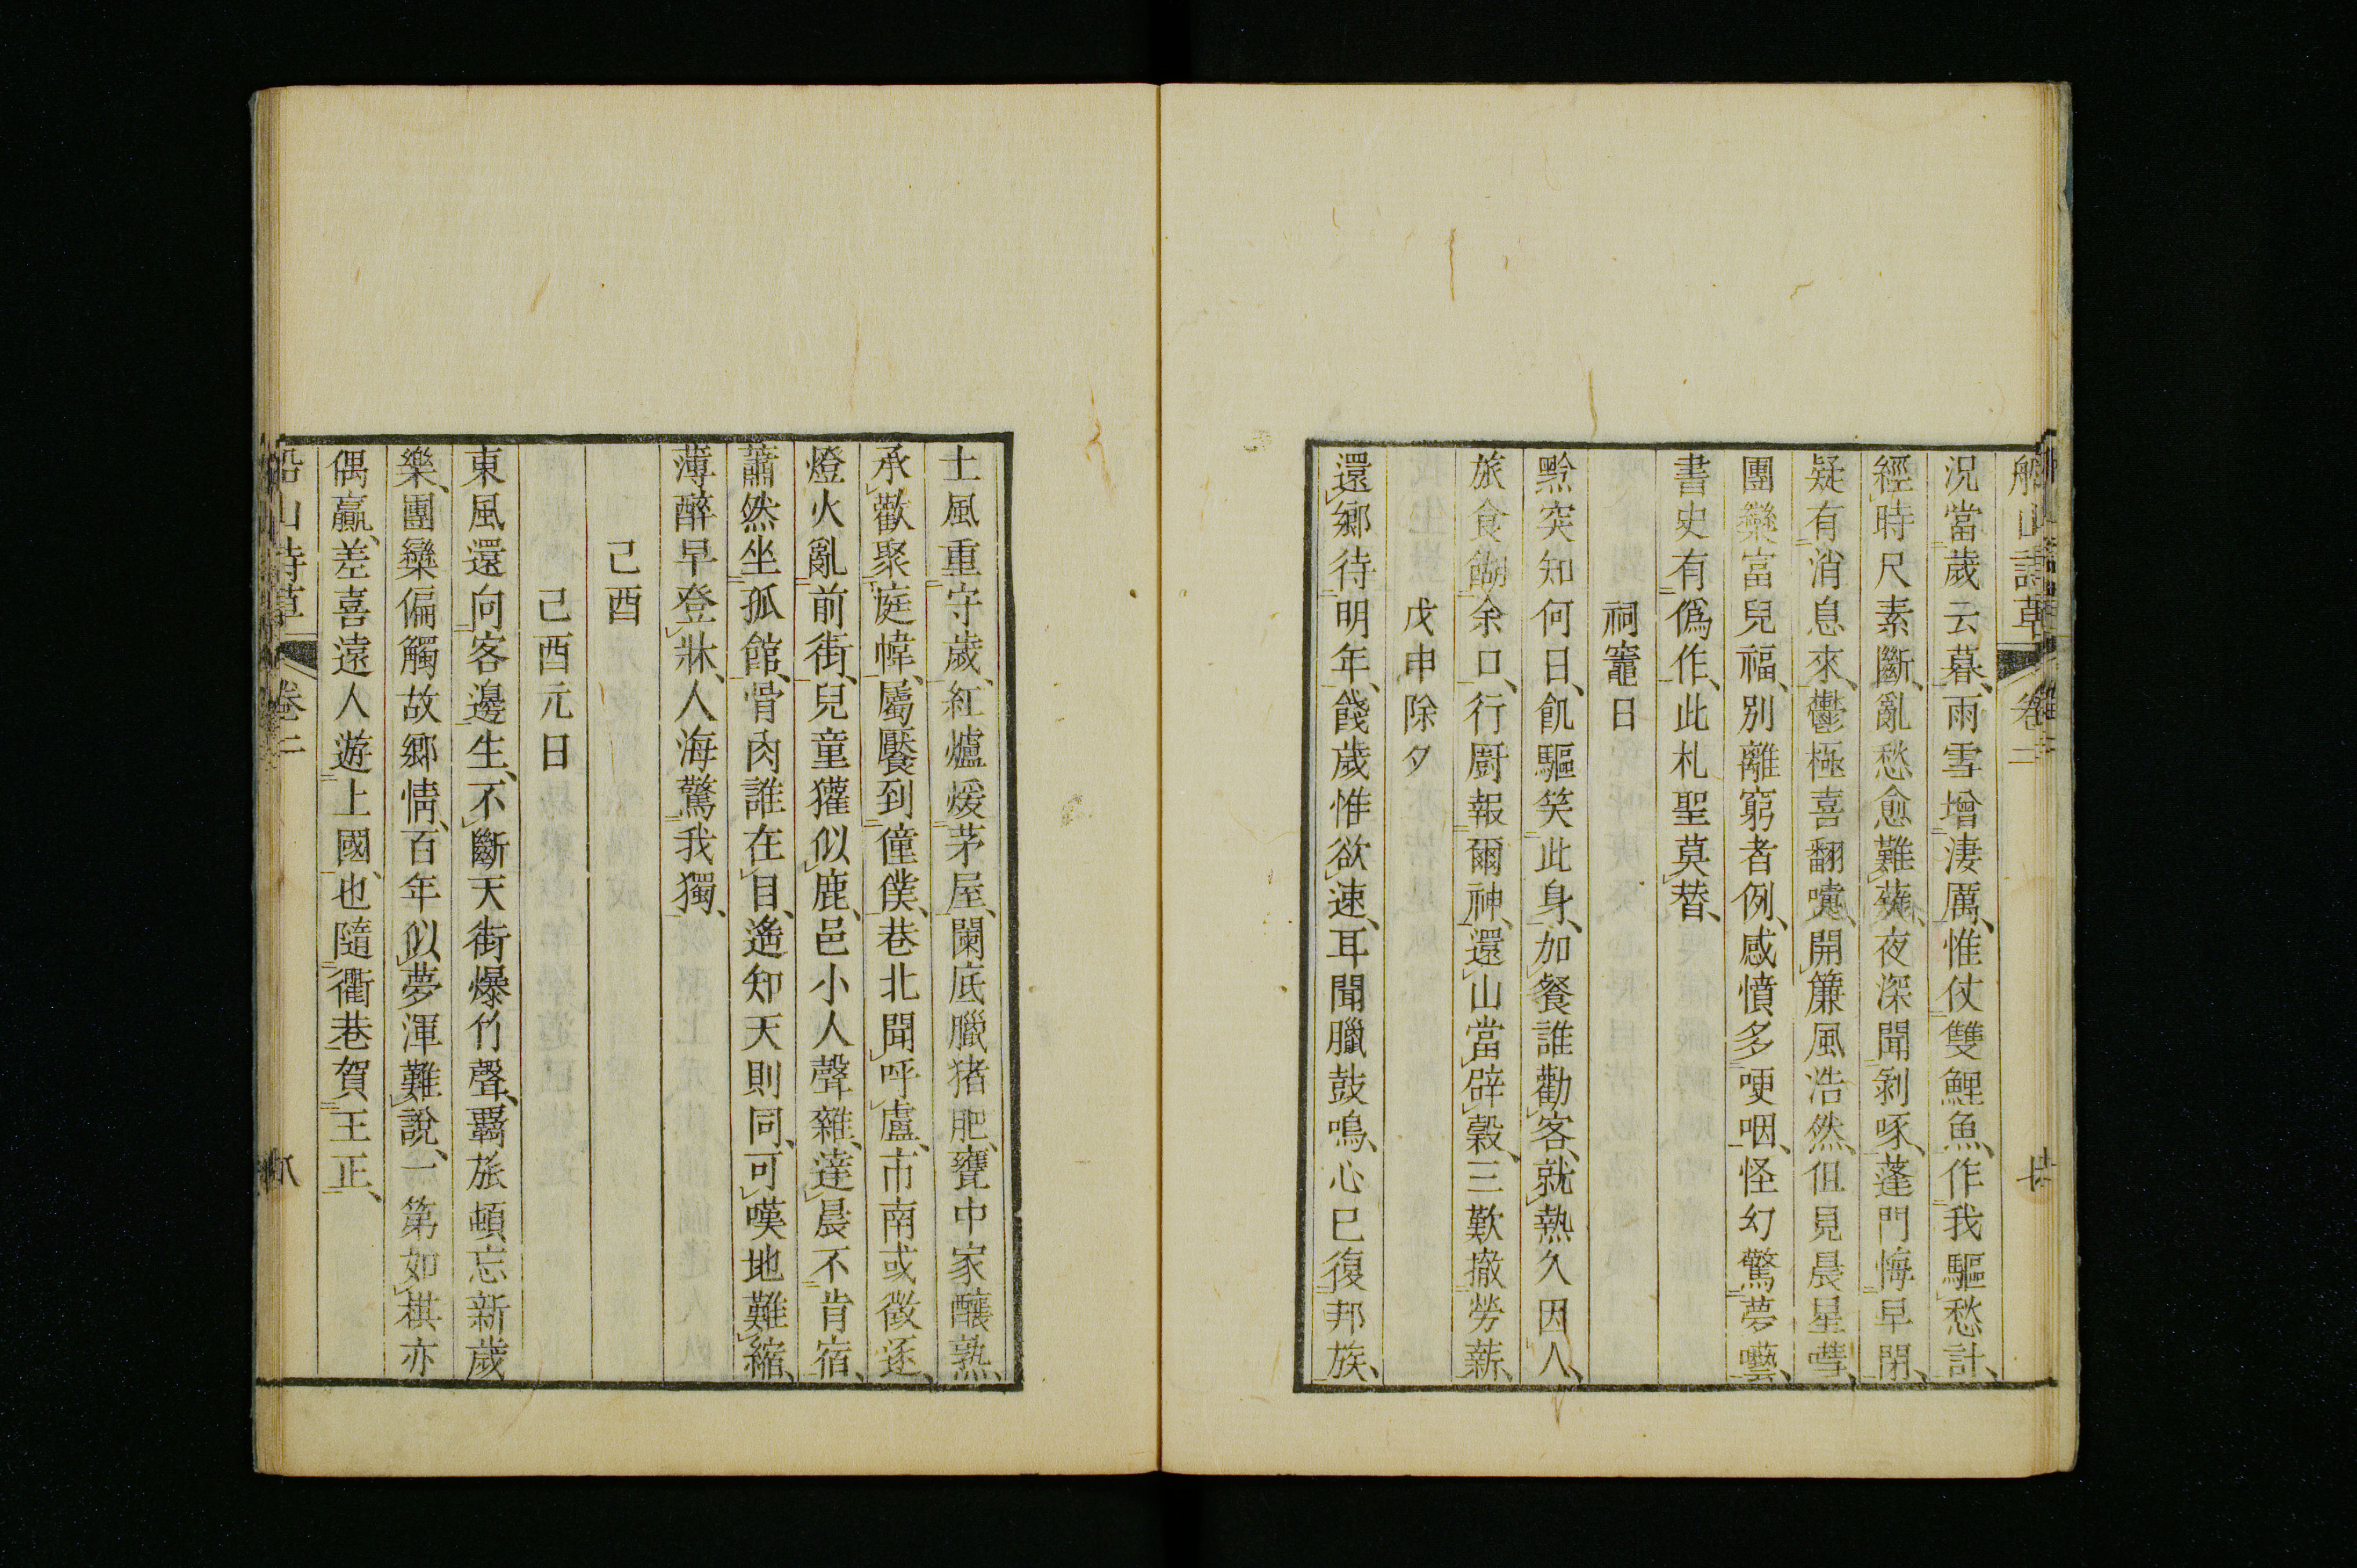 船山詩草 卷二
況當歲云暮雨雪增淒厲惟仗雙鯉魚作我驅愁計
經時尺素斷亂愁愈難薙夜深聞剝啄蓬門悔早閉
疑有消息來鬱極喜翻嚏開簾風浩然但見晨星嘒
團欒富兒福別離窮者例感憤多哽咽怪幻驚夢囈
書史有僞作此札聖莫替
祠竈日
黔突知何日飢驅笑此身加餐誰勸客就熱久因人
旅食餬余口行厨報爾神還山當辟穀三歎撤勞薪
戊申除夕
還鄉待明年餞歲惟欲速耳聞臘鼓鳴心已復邦族
土風重守歲紅爐煖茅屋闌底臘猪肥甕中家釀熟
承歡聚庭幃屬饜到僮僕巷北聞呼盧市南或徵逐
燈火亂前街兒童獾似鹿邑小人聲雜達晨不肯宿
蕭然坐孤館骨肉誰在目遙知天則同可嘆地難縮
薄醉早登牀人海驚我獨
己酉
己酉元日
東風還向客邊生不斷天街爆竹聲羈旅頓忘新歲
樂團欒偏觸故鄉情百年似夢渾難說一第如棋亦
偶贏差喜遠人遊上國也隨衢巷賀王正
船山詩草 卷二